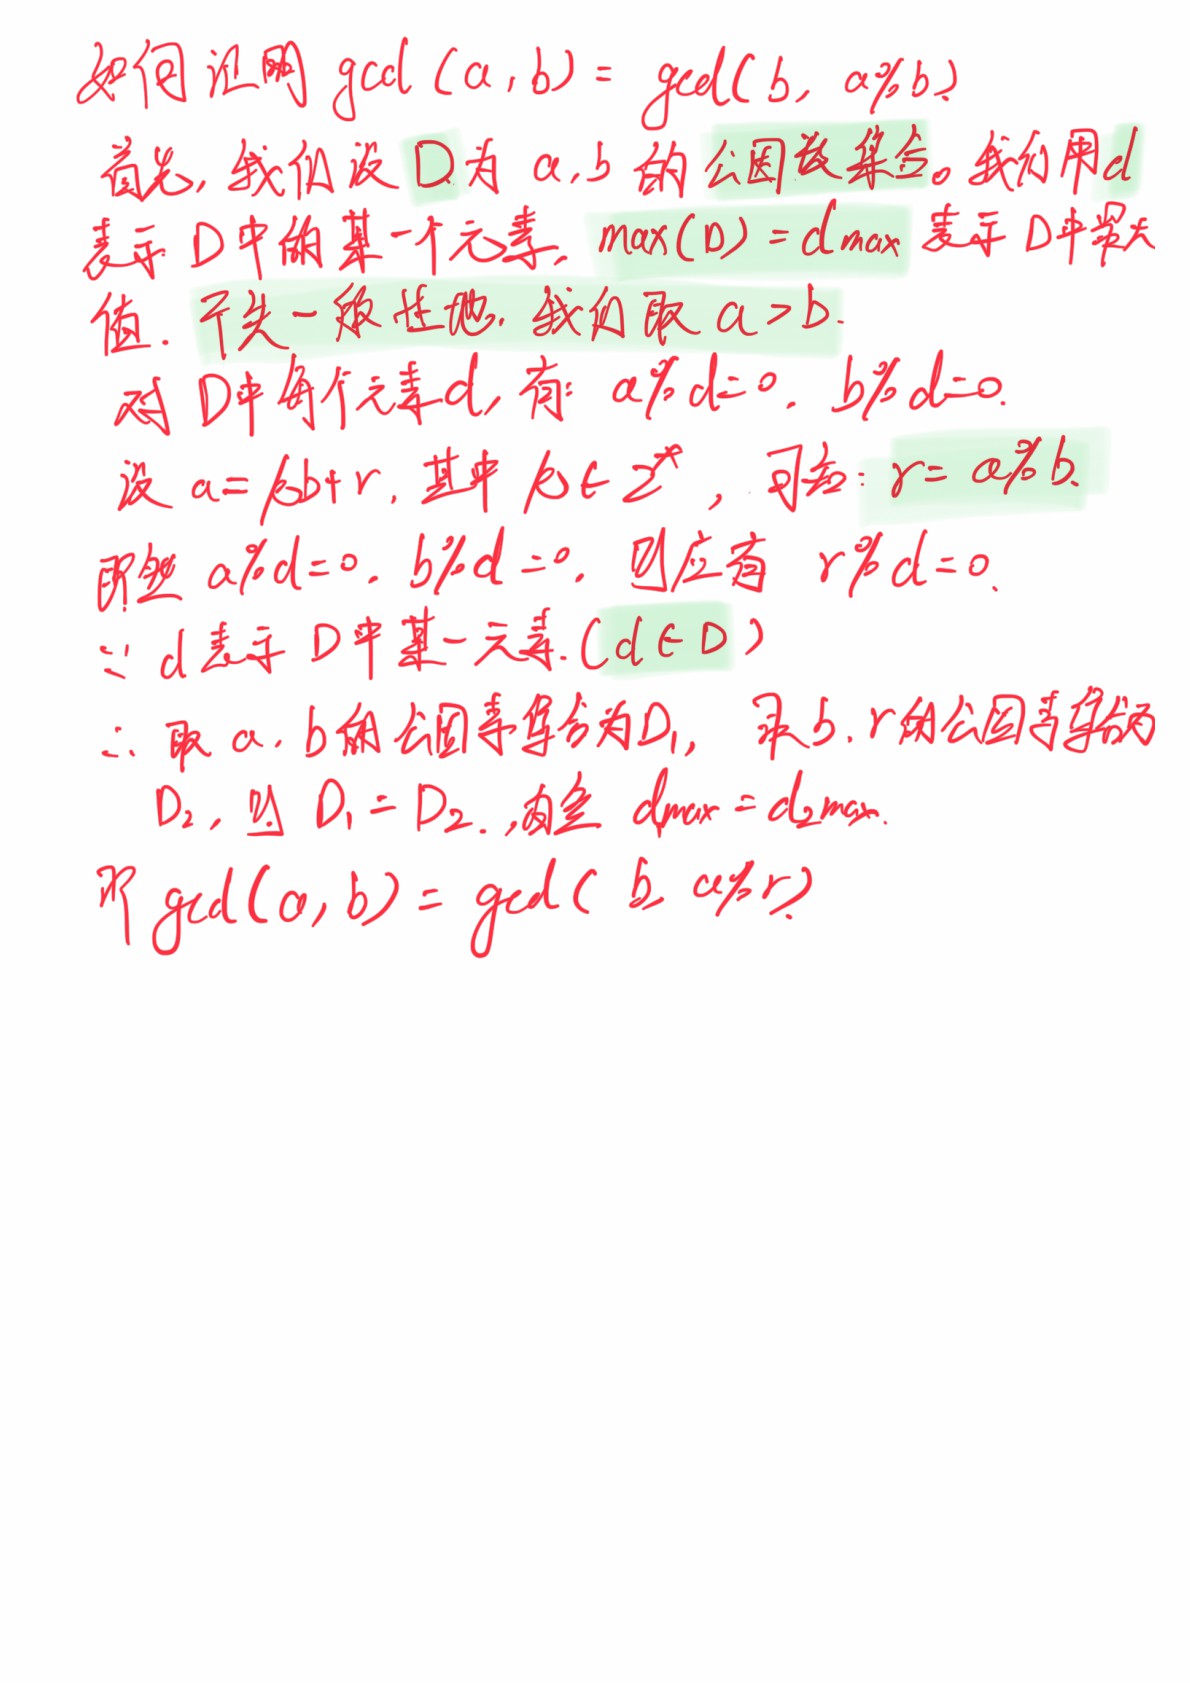 如何证明 gcd(a,b) = gcd(b, a%b).
首先,我们设 D 为 a,b 的公因数集合。我们用d
表示 D中的某一个元素. max(D) = dmax 表示 D中最大
值. 不失一般性地,我们取 a>b.
对 D中每个元素d,有: a%d=0. b%d=0.
设 a=kb+r,其中 k∈Z*,可知: r= a%b.
既然 a%d=0. b%d=0. 则应有 r%d=0.
∵ d表示 D中某一元素.(d∈D)
∴ 取 a.b的公因素集合为D₁, 取b.r的公因素集合为
D₂,则 D₁=D₂., dmax=d₂max.
即 gcd(a,b) = gcd(b, a%r).